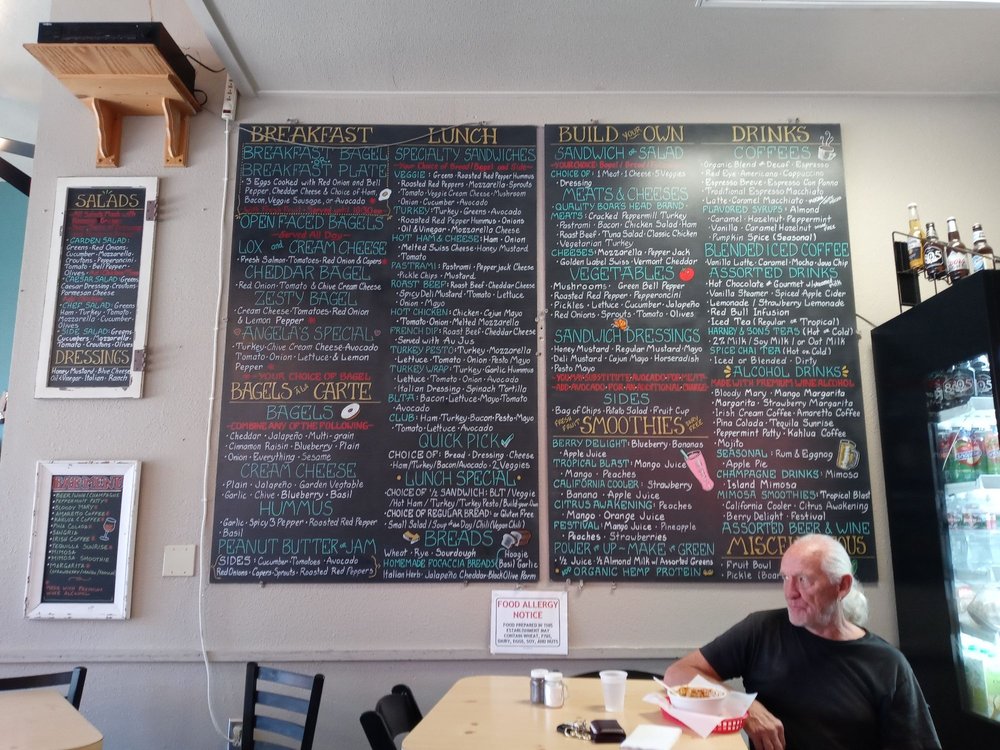 SALADS
GARDEN SALAD:
Greens · Red Onions
Cucumber · Mozzarella
Croutons · Pepperoncini
Tomato · Bell Pepper
Olives
CAESAR SALAD: Greens
Caesar Dressing · Croutons
Parmesan Cheese
CHEF SALAD: Greens
Ham · Turkey · Tomato
Mozzarella · Cucumber
Olives
Greens
Cucumbers · Tomato
Croutons · Olives
DRESSINGS
Honey Mustard · Blue Cheese
Oil & Vinegar · Italian · Ranch
BEER/WINE/CHAMPAGNE
PEPPERMINT PATTY
BLOODY MARY
AMARETTO COFFEE
KAHLUA & COFFEE
PINA COLADA
SANGRIA
IRISH COFFEE
TEQUILLA SUNRISE
MIMOSA
MIMOSA SMOOTHIE
MARGARITA
MADE WITH PREMIUM
WINE ALCOHOL
BREAKFAST
BREAKFAST BAGEL
BREAKFAST PLATE
3 Eggs Cooked with Red Onion and Bell
Pepper, Cheddar Cheese & Choice of Ham,
Bacon, Veggie Sausage, or Avocado
OPEN FACED BAGELS
Served All Day
LOX and CREAM CHEESE
Fresh Salmon · Tomatoes · Red Onion & Capers
CHEDDAR BAGEL
Red Onion · Tomato & Chive Cream Cheese
ZESTY BAGEL
Cream Cheese · Tomatoes · Red Onion
& Lemon Pepper
ANGELA'S SPECIAL
Turkey · Chive Cream Cheese · Avocado
Tomato · Onion · Lettuce & Lemon
Pepper
YOUR CHOICE OF BAGEL
BAGELS ALA CARTE
BAGELS
COMBINE ANY OF THE FOLLOWING
· Cheddar · Jalapeño · Multi-grain
· Cinnamon Raisin · Blueberry · Plain
· Onion · Everything · Sesame
CREAM CHEESE
· Plain · Jalapeño · Garden Vegtable
· Garlic · Chive · Blueberry · Basil
HUMMUS
· Garlic · Spicy 3 Pepper · Roasted Red Pepper
Basil
PEANUT BUTTER & JAM
SIDES: Cucumber · Tomatoes · Avocado
Red Onions · Capers · Sprouts · Roasted Red Peppers
LUNCH
SPECIALTY SANDWICHES
Your Choice of Bread/Bagel and Side
VEGGIE: Greens · Roasted Red Pepper Hummus
Roasted Red Peppers · Mozzarella · Sprouts
Tomato · Veggie Cream Cheese · Mushroom
Onion · Cucumber · Avocado
TURKEY: Turkey · Greens · Avocado
· Roasted Red Pepper Hummus · Onions
Oil & Vinegar · Mozzarella Cheese
HOT HAM & CHEESE: Ham · Onion
· Melted Swiss Cheese · Honey Mustard
· Tomato
PASTRAMI: Pastrami · Pepper jack Cheese
Pickle Chips · Mustard
ROAST BEEF: Roast Beef · Cheddar Cheese
· Spicy Deli Mustard · Tomato · Lettuce
· Onion · Mayo
HOT CHICKEN: Chicken · Cajun Mayo
· Tomato · Onion · Melted Mozzarella
FRENCH DIP: Roast Beef · Cheddar Cheese
Served with Au Jus
TURKEY PESTO: Turkey · Mozzarella
· Lettuce · Tomato · Onion · Pesto Mayo
TURKEY WRAP: Turkey · Garlic Hummus
· Lettuce · Tomato · Onion · Avocado
· Italian Dressing · Spinach Tortilla
BLTA: Bacon · Lettuce · Mayo · Tomato
· Avocado
CLUB: Ham · Turkey · Bacon · Pesto · Mayo
· Tomato · Lettuce · Avocado
QUICK PICK
CHOICE OF: Bread · Dressing · Cheese
Ham/Turkey/Bacon/Avocado · 2 Veggies
LUNCH SPECIAL
CHOICE OF ½ SANDWICH: BLT/Veggie
/Hot Ham/Turkey/Turkey Pesto/Build your Own
CHOICE OF REGULAR BREAD or Gluten Free
Small Salad/Soup of the Day/Chili (Vegan Chili)
BREADS
Wheat · Rye · Sourdough · Hoogie
HOMEMADE FOCACCIA BREADS: Basil Garlic
Italian Herb · Jalapeño Cheddar · Black Olive Parm
BUILD YOUR OWN
SANDWICH or SALAD
YOUR CHOICE Bagel / Bread
CHOICE OF: 1 Meat · 1 Cheese · 5 Veggies
· Dressing
MEATS & CHEESES
QUALITY BOAR'S HEAD BRAND
MEATS: Cracked Peppermill Turkey
· Pastrami · Bacon · Chicken Salad · Ham
· Roast Beef · Tuna Salad · Classic Chicken
· Vegetarian Turkey
CHEESES: Mozzarella · Pepper Jack
· Golden Label Swiss · Vermont Cheddar
VEGETABLES
Mushrooms · Green Bell Pepper
Roasted Red Pepper · Pepperoncini
· Pickles · Lettuce · Cucumber · Jalapeño
Red Onions · Sprouts · Tomato · Olives
SANDWICH DRESSINGS
Honey Mustard · Regular Mustard · Mayo
Deli Mustard · Cajun Mayo · Horseradish
Pesto Mayo
YOU MAY SUBSTITUTE AVOCADO FOR MEAT
SIDES
Bag of Chips · Potato Salad · Fruit Cup
SMOOTHIES
BERRY DELIGHT: Blueberry · Bananas
· Apple Juice
TROPICAL BLAST: Mango Juice
· Mango · Peaches
CALIFORNIA COOLER: Strawberry
· Banana · Apple Juice
CITRUS AWAKENING: Peaches
· Mango · Orange Juice
FESTIVAL: Mango Juice · Pineapple
· Peaches · Strawberries
POWER it UP - MAKE it GREEN
½ Juice · ½ Almond Milk w/ Assorted Greens
ORGANIC HEMP PROTEIN
DRINKS
COFFEES
Organic Blend or Decaf · Espresso
Red Eye · Americano · Cappuccino
Espresso Breve · Espresso Con Panna
Traditional Espresso Macchiato
Latte · Caramel Macchiato
FLAVORED SYRUPS: Almond
· Caramel · Hazelnut · Peppermint
Vanilla · Caramel Hazelnut
Pumpkin Spice (Seasonal)
BLENDED ICED COFFEE
Vanilla Latte · Caramel · Mocha · Java Chip
ASSORTED DRINKS
Hot Chocolate · Gourmet
Vanilla Steamer · Spiced Apple Cider
Lemonade / Strawberry Lemonade
Red Bull Infusion
Iced Tea (Regular or Tropical)
HARNEY & SONS TEAS (Hot or Cold)
2% Milk / Soy Milk / or Oat Milk
SPICE CHAI TEA (Hot or Cold)
Iced or Blended or Dirty
ALCOHOL DRINKS
MADE WITH PREMIUM WINE ALCOHOL
Bloody Mary · Mango Margarita
Margarita · Strawberry Margarita
Irish Cream Coffee · Amaretto Coffee
Pina Colada · Tequila Sunrise
Peppermint Patty · Kahlua Coffee
Mojito
SEASONAL: Rum & Eggnog
· Apple Pie
CHAMPAGNE DRINKS: Mimosa
· Island Mimosa
MIMOSA SMOOTHIES: Tropical Blast
California Cooler · Citrus Awakening
· Berry Delight · Festival
ASSORTED BEER & WINE
· Fruit Bowl
Pickle
FOOD ALLERGY
NOTICE
FOOD PREPARED IN THIS
ESTABLISHMENT MAY
CONTAIN WHEAT, EGG,
DAIRY, EGGS, SOY, AND NUTS